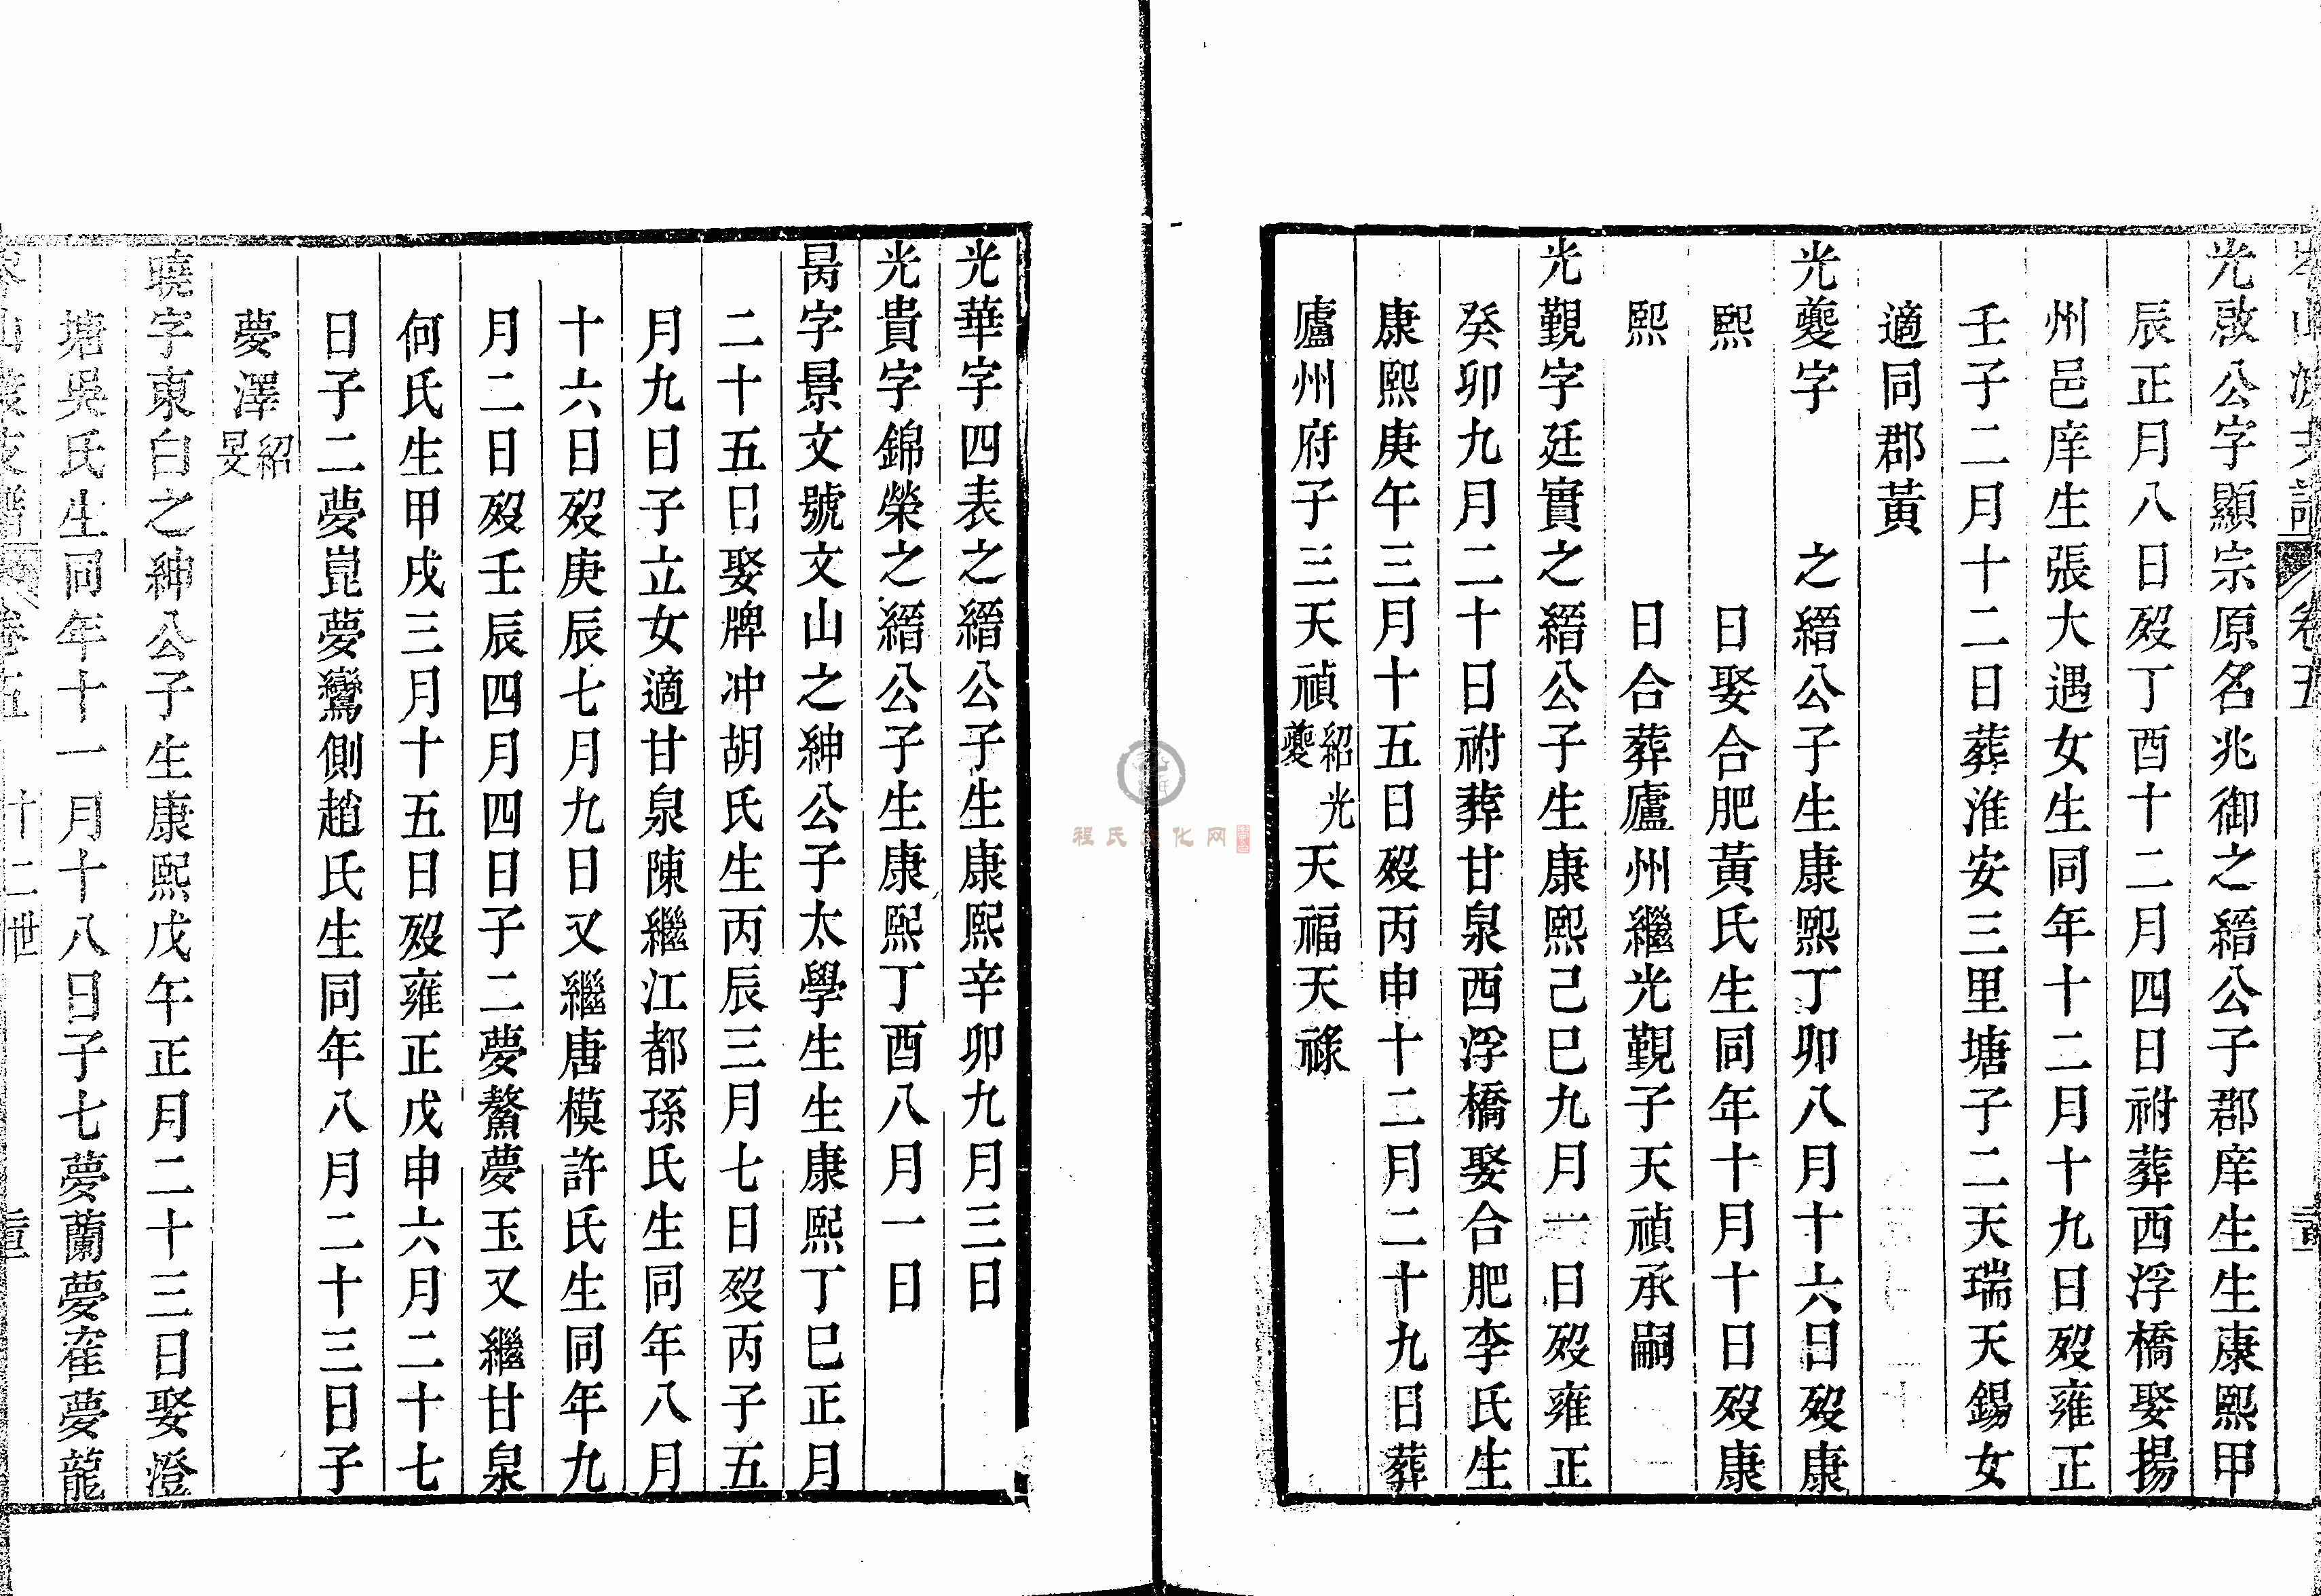 岑山渡支譜 卷五
光啟公字顯宗原名兆御之縉公子郡庠生生康熙甲
辰正月八日歿丁酉十二月四日祔葬西浮橋娶揚
州邑庠生張大遇女生同年十二月十九日歿雍正
壬子二月十二日葬淮安三里塘子二天瑞天錫女
適同郡黃
光夔字 之縉公子生康熙丁卯八月十六日歿康
熙 日娶合肥黃氏生同年十月十日歿康
熙 日合葬廬州繼光覲子天禎承嗣
光覲字廷實之縉公子生康熙己巳九月一日歿雍正
癸卯九月二十日祔葬甘泉西浮橋娶合肥李氏生
康熙庚午三月十五日歿丙申十二月二十九日葬
廬州府子三天禎紹光夔天福天祿
光華字四表之縉公子生康熙辛卯九月三日
光貴字錦榮之縉公子生康熙丁酉八月一日
昺字景文號文山之紳公子太學生生康熙丁巳正月
二十五日娶牌冲胡氏生丙辰三月七日歿丙子五
月九日子立女適甘泉陳繼江都孫氏生同年八月
十六日歿庚辰七月九日又繼唐模許氏生同年九
月二日歿壬辰四月四日子二夢鰲夢玉又繼甘泉
何氏生甲戌三月十五日歿雍正戊申六月二十七
日子二夢崑夢鸞側趙氏生同年八月二十三日子
夢澤紹旻
曉字東白之紳公子生康熙戊午正月二十三日娶澄
塘吳氏生同年十一月十八日子七夢蘭夢奎夢龍
岑山渡支譜 卷五 十二世
程氏文化网